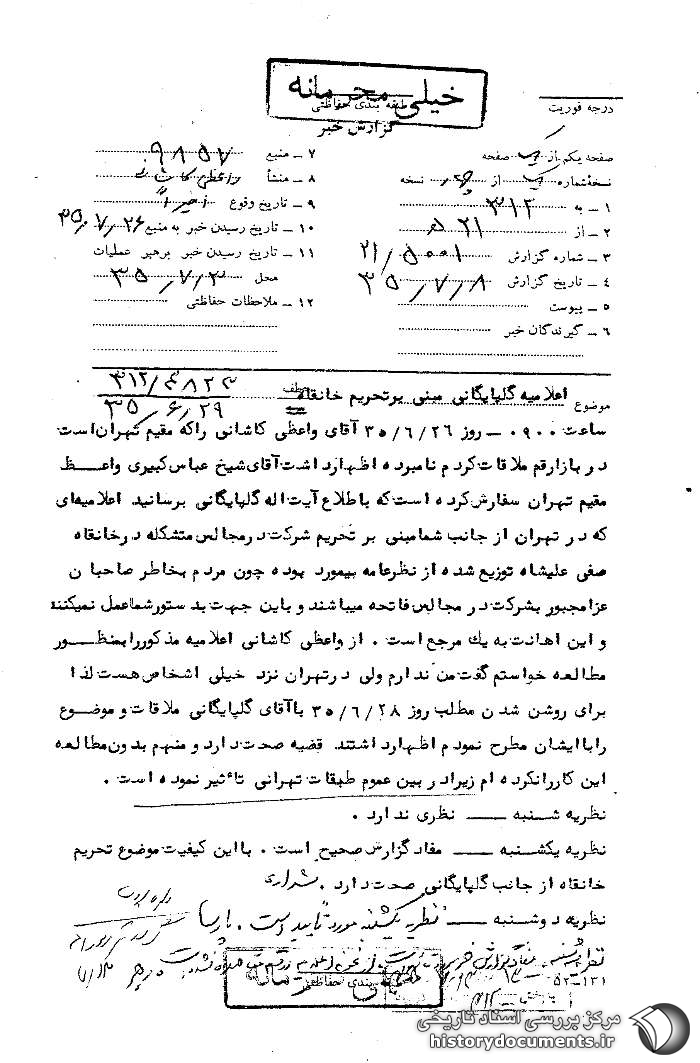 خیلی محرمانه
طبقه بندی حفاظتی
درجه فوریت
گزارش خبر
صفحه یکم از یک صفحه
نسخه شماره یک از چهار نسخه
۱ – به ۳۱۲
۲ – از ۲۱ ه
۳ – شماره گزارش ۲۱/۵۰۰۱
۴ – تاریخ گزارش ۳۵/۷/۸
۵ – پیوست
۶ – گیرندگان خبر
۷ – منبع ۹۸۵۷
۸ – منشأ واعظی کاشانی
۹ – تاریخ وقوع اخیراً
۱۰ – تاریخ رسیدن خبر به منبع ۳۵/۷/۲۶
۱۱ – تاریخ رسیدن خبر برهبر عملیات
محل ۳۵/۷/۳
۱۲ – ملاحظات حفاظتی
موضوع اعلامیه گلپایگانی مبنی برتحریم خانقاه عطف ۳۱۲/۴۸۲۳
۳۵/۶/۲۹
ساعت ۰۹۰۰ – روز ۳۵/۶/۲۶ آقای واعظی کاشانی راکه مقیم تهران است
در بازارقم ملاقات کردم نامبرده اظهارداشت آقای شیخ عباس کبیری واعظ
مقیم تهران سفارش کرده است که باطلاع آیت اله گلپایگانی برسانید اعلامیه‌ای
که در تهران از جانب شمامبنی بر تحریم شرکت درمجالس متشکله درخانقاه
صفی علیشاه توزیع شده از نظرعامه بیمورد بوده چون مردم بخاطر صاحبان
عزامجبور بشرکت در مجالس فاتحه میباشند و باین جهت بدستورشماعمل نمیکنند
و این اهانت به یك مرجع است . از واعظی کاشانی اعلامیه مذکوررابمنظور
مطالعه خواستم گفت من ندارم ولی درتهران نزد خیلی اشخاص هست لذا
برای روشن شدن مطلب روز ۳۵/۶/۲۸ باآقای گلپایگانی ملاقات و موضوع
راباایشان مطرح نمودم اظهارداشتند قضیه صحت دارد و منهم بدون مطالعه
این کاررانکرده ام زیرادر بین عموم طبقات تهرانی تأثیر نموده است .
نظریه شنبه — نظری ندارد .
نظریه یکشنبه — مفاد گزارش صحیح است . بااین کیفیت موضوع تحریم
خانقاه از جانب گلپایگانی صحت دارد .
نظریه دوشنبه — نظریه یکشنبه مورد تأیید است . پارسا
بندی حفاظتی
۵۲-۱۳۱
مرکز بررسی اسناد تاریخی
historydocuments.ir